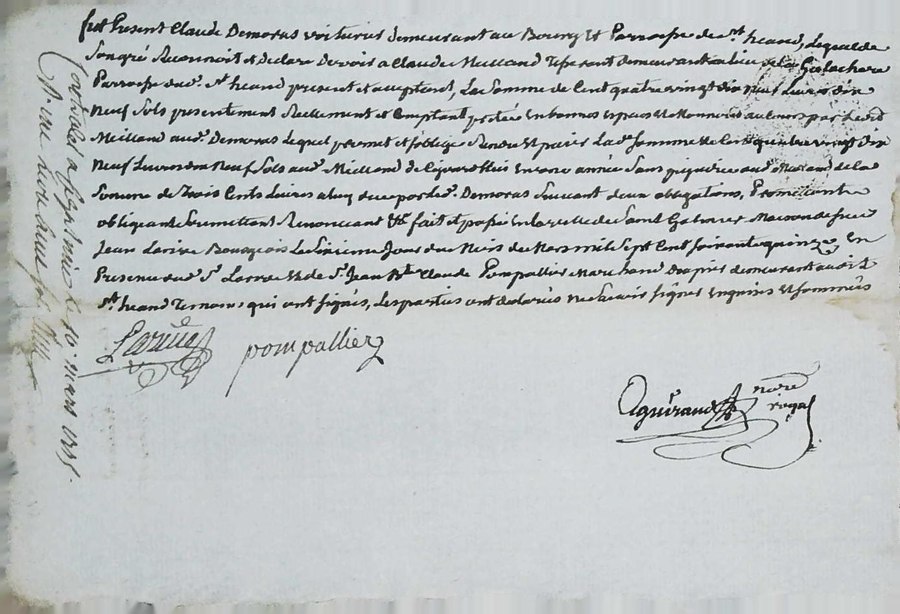 fut Present Claude Demoras voiturier demeurant au Bourg et Parroisse de St heand, Lequel de
Son gré Reconnoit et declare devoir a Claude Meilland Tisserant demeurant au lieu de la
Parroisse dud. St heand present et acceptant, La Somme de Cent quatre vingt dix neuf Livres dix
Neuf Sols presentement Reellement et Comptant portée En bonnes Especes et Monnoie au Cours par led.
Meilland aud. Demoras Lequel promet et s'oblige Rendre et paier Lad. Somme de Cent quatre vingt dix
Neuf Livres dix Neuf Sols aud. Meilland En une année Sans prejudice aud. Meilland de la
Somme de Trois Cents Livres a luy due par led. Demoras Suivant deux obligations, Promettant
obligeant Soumettant Renonceant &c fait et passé En la ville de Saint Galmier Maison de Sieur
Jean Larive Bourgeois Le Sixieme Jour du Mois de Mars mil Sept Cent Soixante quinze, En
Presence dud. Sr Larive et de Sr Jean Bte Claude Pompallier Marchand demeurant aud.
St heand Temoins qui ont signés, Les parties ont declarés ne Scavoir signer Enquises et Sommées
Larive
pompallier
Aguiraud nore
royal
Controllé a St Galmier Le 10e mars 1775.